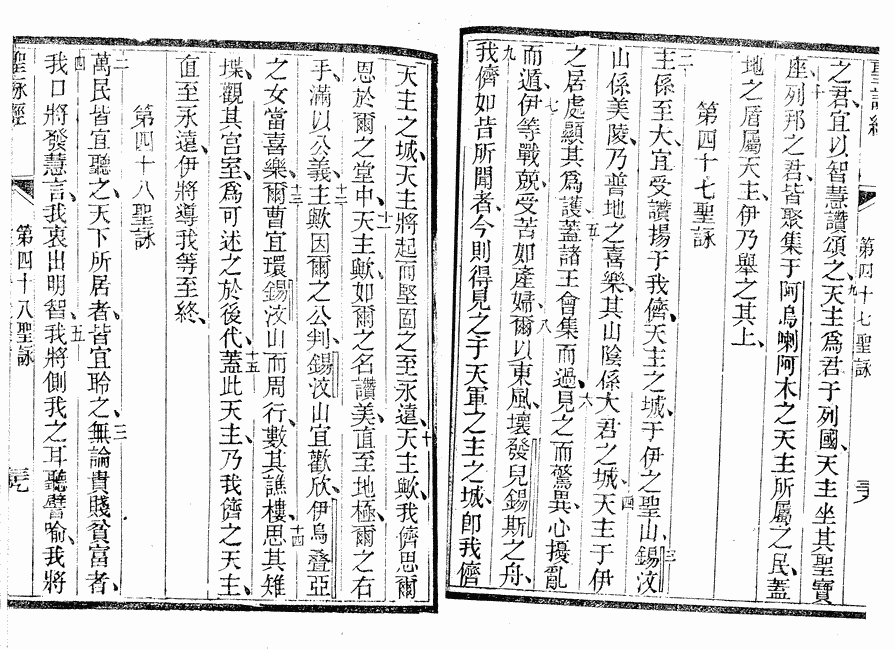 聖詠經
第四十七聖詠
三六
之君、宜以智慧讚頌之、九天主爲君于列國、天主坐其聖寶
座、十列邦之君、皆聚集于阿烏喇阿木之天主所屬之民、蓋
地之盾屬天主、伊乃舉之其上、
第四十七聖詠
二主係至大、宜受讚揚于我儕天主之城、于伊之聖山、三錫汶
山係美陵、乃普地之喜樂、其山陰係大君之城、四天主于伊
之居處顯其爲護、五蓋諸王會集而過、六見之而驚異、心擾亂
而遁、七伊等戰兢、受苦如產婦、八爾以東風壞發兒錫斯之舟、
九我儕如昔所聞者、今則得見之于天軍之主之城、卽我儕
天主之城、天主將起而堅固之至永遠、十天主歟、我儕思爾
恩於爾之堂中、十一天主歟、如爾之名、讚美直至地極、爾之右
手、滿以公義、十二主歟、因爾之公判、錫汶山宜歡欣、伊烏疊亞
之女當喜樂、十三爾曹宜環錫汶山而周行、數其譙樓、十四思其雉
堞、觀其宮室、爲可述之於後代、十五蓋此天主、乃我儕之天主、
直至永遠、伊將導我等至終、
第四十八聖詠
二萬民皆宜聽之、天下所居者、皆宜聆之、三無論貴賤貧富者、
四我口將發慧言、我衷出明智、五我將側我之耳聽譬喻、我將
聖詠經
第四十八聖詠
三七